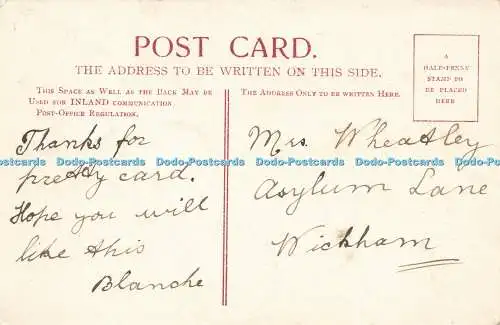 POST CARD.
THE ADDRESS TO BE WRITTEN ON THIS SIDE.
A
HALF-PENNY
STAMP TO
BE PLACED
HERE
THIS SPACE AS WELL AS THE BACK MAY BE
USED FOR INLAND COMMUNICATION
POST-OFFICE REGULATION.
THE ADDRESS ONLY TO BE WRITTEN HERE.
Thanks for
pretty card.
Hope you will
like this
Blanche
Mrs. Wheatley
Asylum Lane
Wickham
Dodo-Postcards Dodo-Postcards Dodo-Postcards Dodo-Postcards